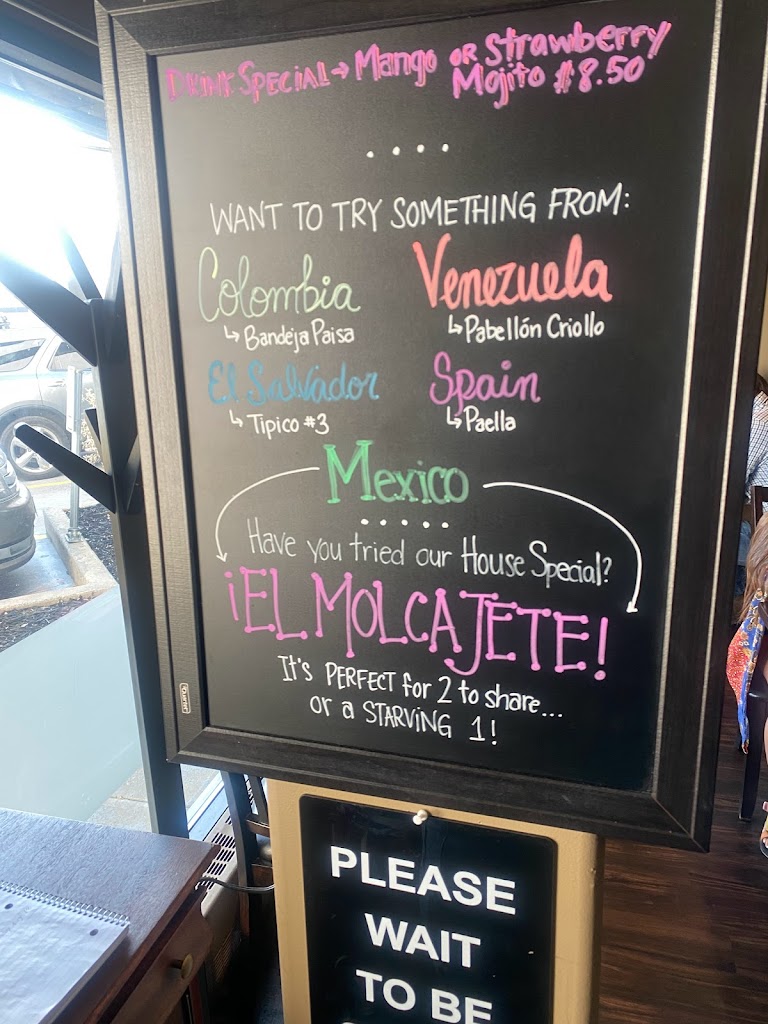 DRINK SPECIAL → Mango OR Strawberry
Mojito $8.50
WANT TO TRY SOMETHING FROM:
Colombia
↳ Bandeja Paisa
Venezuela
↳ Pabellón Criollo
El Salvador
↳ Tipico #3
Spain
↳ Paella
Mexico
Have you tried our House Special?
¡EL MOLCAJETE!
It's PERFECT for 2 to share...
or a STARVING 1!
PLEASE
WAIT
TO BE